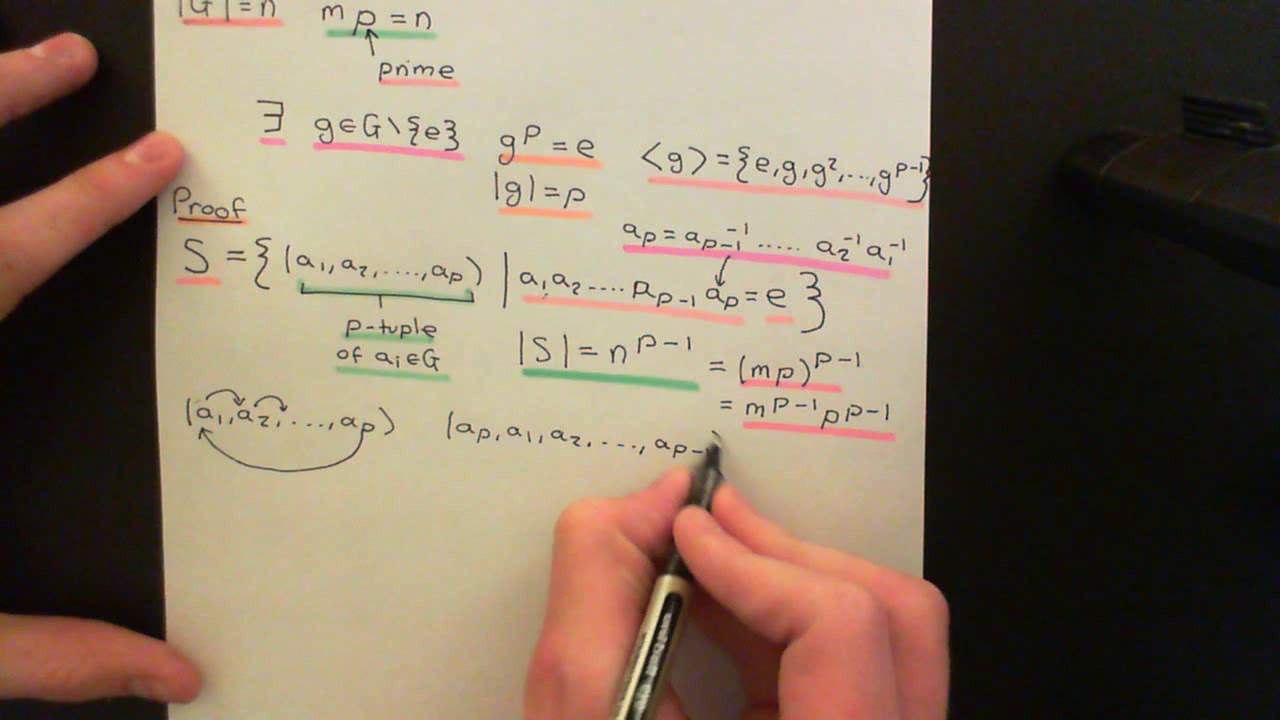 |G| = n   mp = n
prime
∃ g∈G\{e}   g^p = e   <g> = {e, g, g², ..., g^(p-1)}
|g| = p
Proof
a_p = a_(p-1)^(-1) ..... a_2^(-1) a_1^(-1)
S = {(a_1, a_2, ...., a_p) | a_1 a_2 .... a_(p-1) a_p = e}
p-tuple
of a_i∈G
|S| = n^(p-1) = (mp)^(p-1)
= m^(p-1) p^(p-1)
(a_1, a_2, ..., a_p)   (a_p, a_1, a_2, ...., a_(p-1))